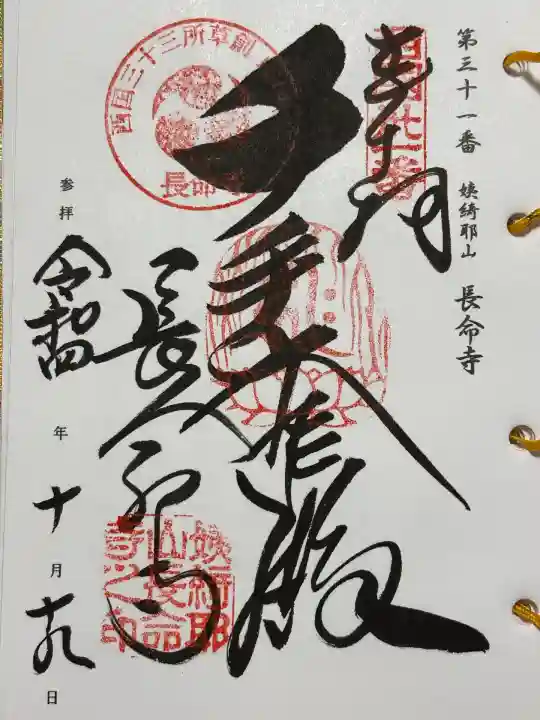 第三十一番 姨綺耶山 長命寺
奉拝
西国卅一番
千手大悲殿
西国三十三所草創
長命寺
長命寺
姨綺耶
山長命
寺之印
参拝 令和四年 十月十九日